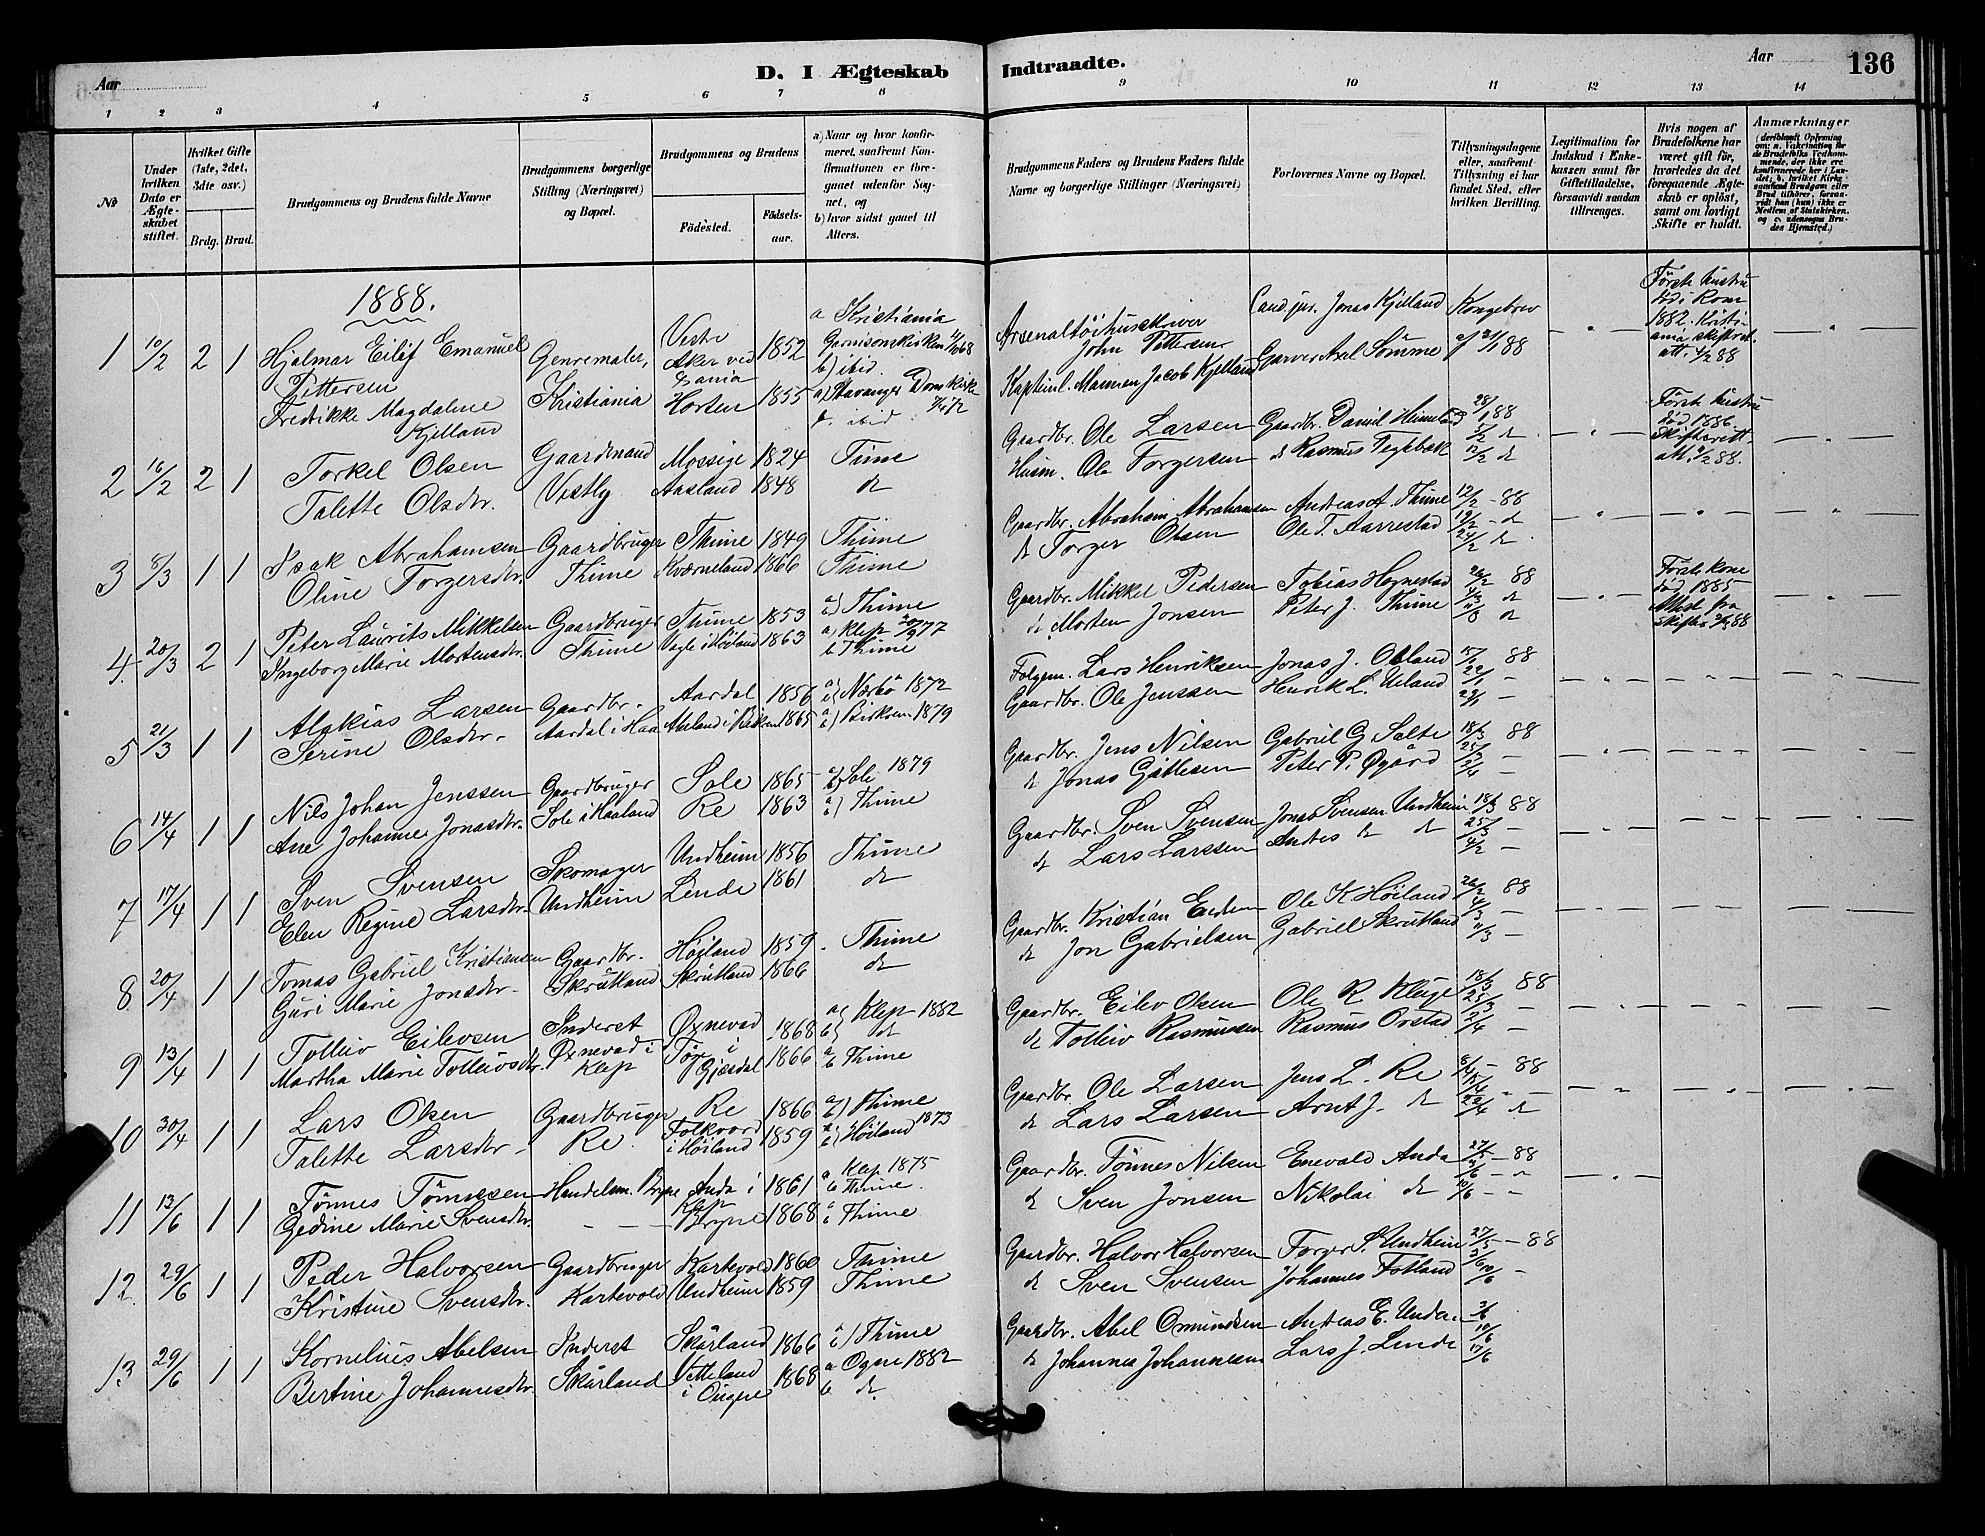 Aar
D. I Ægteskab
Indtraadte.
Aar
136
1 2 3 4 5 6 7 8 9 10 11 12 13 14
No
Under hvilken Dato er Ægteskabet stiftet.
Hvilket Gifte (1ste, 2det, 3die osv.)
Brdg. Brud.
Brudgommens og Brudens fulde Navne
Brudgommens borgerlige Stilling (Næringsvei) og Bopæl.
Brudgommens og Brudens
Födested.
Födselsaar.
a) Naar og hvor konfirmeret, saafremt Konfirmationen er foregaaet udenfor Sognet, og
b) hvor sidst gaaet til Alters.
Brudgommens Faders og Brudens Faders fulde Navne og borgerlige Stillinger (Næringsvei)
Forlovernes Navne og Bopæl.
Tillysningsdagene eller, saafremt Tillysning ei har fundet Sted, efter hvilken Bevilling.
Legitimation for Indskud i Enkekassen samt for Giftetilladelse, forsaavidt saadan tiltrænges.
Hvis nogen af Brudefolkene har været gift för, hvorledes da det foregaaende Ægteskab er oplöst, samt om lovligt Skifte er holdt.
Anmærkninger
1888.
1 10/2 2 1 Hjalmar Eilif Emanuel Pettersen Genremaler, Kristiania Vestre Aker ved Xania 1852 a Kristiania Garnisonskirken b) ibid
Fredrikke Magdalene Kjelland Horten 1855 a) Stavanger Domkirke b. ibid
Arsenaltöihusskriver John Pettersen Cand. jur. Jonas Kjelland Kongebrev
Kaptinl. Marinen Jacob Kjelland Garver Axel Sömme af 21/1 88
Förste hustru död i Rom 1882. Kristiania skifteret. att. 4/2 88
2 16/2 2 1 Torkel Olsen Gaardmand Mossige 1824 Time
Talette Olsdtr. Vestly Aasland 1848 do
Gaardbr. Ole Larsen Gaardbr. Daniel Heimeland 28/1 88
Husm. Ole Torgersen do Rasmus Teglebæk 5/2 do 12/2 do
Förste hustru död 1886. Skifteret. att. 4/2 88.
3 8/3 1 1 Isak Abrahamsen Gaardbruger Thime 1849 Thime
Oline Torgersdtr. Thime Kværneland 1866 Thime
Gaardbr. Abraham Abrahamsen Andreas A Thime 12/2 - 88
do Torger Olsen Ole T. Aarrestad 19/2 - do 24/2 do
4. 20/3 2 1 Peter Laurits Mikkelsen Gaardbruger Thime 1853 a) b) Thime
Ingeborg Marie Mortensdtr. Thime Vagle i Höiland 1863 a) Klep 77 b Thime
Gaardbr. Mikkel Pedersen Tobias Hognestad 26/2 88
do Morten Jonsen Peter J. Thime 4/3 do 11/3 do
Förste kone död 1885 Attest fra skifter. 88
5 21/3 1 1 Alakias Larsen Gaardbr. Aardal 1856 a) b) Nærbö 1872
Serine Olsdtr. Aardal i Haa 1865 a) b) Birkrem 1879
Folgem. Lars Henriksen Jonas J. Obland 15/1 88
Gaardbr. Ole Jenssen Henrik L. Ueland 22/1 - 29/1 -
6 14/4 1 1 Nils Johan Jenssen Gaardbruger Sole 1865 a) b) Sole 1879
Ane Johanne Jonasdtr. Sole i Haaland Re 1863 a) b) Thime
Gaardbr. Jens Nilsen Gabriel G. Salte 18/3 88
do Jonas Gitlesen Peter P. Øgård 25/3 -
7 17/4 1 1 Sven Svensen Skomager Undheim 1856 Thime
Elen Regine Larsdtr. Undheim Lende 1861 do
Gaardbr. Sven Svensen Jonas Svensen Undheim 18/3 88
do Lars Larssen Andres do do 25/3 -
8. 20/4 1 1 Tomas Gabriel Kristiansen Gaardbr. Höiland 1859 Thime
Guri Marie Jonsdtr. Skrutland Skrutland 1866 do
Gaardbr. Kristian Endsen Ole K Höiland 26/2 88
do Jon Gabrielsen Gabriel Skrutland 4/3 - 11/3 -
9 13/4 1 1 Tolleiv Eilevsen Inderst Øxnevad 1868 a) Klep 1882 b) do
Martha Marie Tolleivsdtr. Øxnevad i Klep i Gjesdal 1866 a b Thime
Gaardbr. Eilev Olsen Ole R. Kleige 18/3 88
do Tolleiv Rasmussen Rasmus Orstad 25/3 - 2/4 -
10 30/4 1 1 Lars Olsen Gaardbruger Re 1866 a) b) Thime
Talette Larsdtr. Re Folkvord i Höiland 1859 a) b) Höiland 1873
Gaardbr. Ole Larsen Jens L. Re 8/4 - 88
do Lars Larsen Arnt J. do 15/4 22/4 do
11 13/6 1 1 Tönnes Tönnessen Handelsm. Bryne Anda i Klep 1861 a Klep 1875 b Thime.
Gedine Marie Svensdtr. Bryne 1868 a b Thime
Gaardbr. Tönnes Nilsen Enevald Anda 27/5 - 88
do Sven Jonsen Nikolai do 10/6
12. 29/6 1 1 Peder Halvorsen Gaardbruger Kartevold 1860 Thime
Kristine Svensdtr. Kartevold Undheim 1859 Thime
Gaardbr. Halvor Halvorsen Torger S. Undheim 27/5 - 88
do Sven Svensen Johannes Fotland 10/6 -
13. 29/6 1 1 Kornelius Abelsen Inderst Skårland 1866 a) b) Thime
Bertine Johannesdtr. Skårland i Ougne 1868 a Ogne 1882 b do.
Gaardbr. Abel Omundsen Andreas E. Unda 3/6
do Johannes Johannesen Lars J. Lende 10/6 17/6